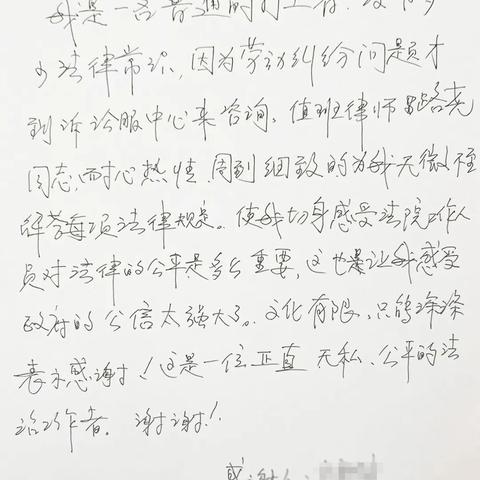 我是一名普通的打工者，没有多
少法律常识，因为劳动纠纷问题才
到诉讼服中心来咨询、值班律师路亮
同志，耐心热情、周到细致的为我无微不至
解答每项法律规定。使我切身感受法院工作人
员对法律的公平是多么重要，这也是让我感受
政府的公信太强大了。文化有限、只能深深
表示感谢！这是一位正直 无私、公平的法
治工作者。谢谢！
感谢人：